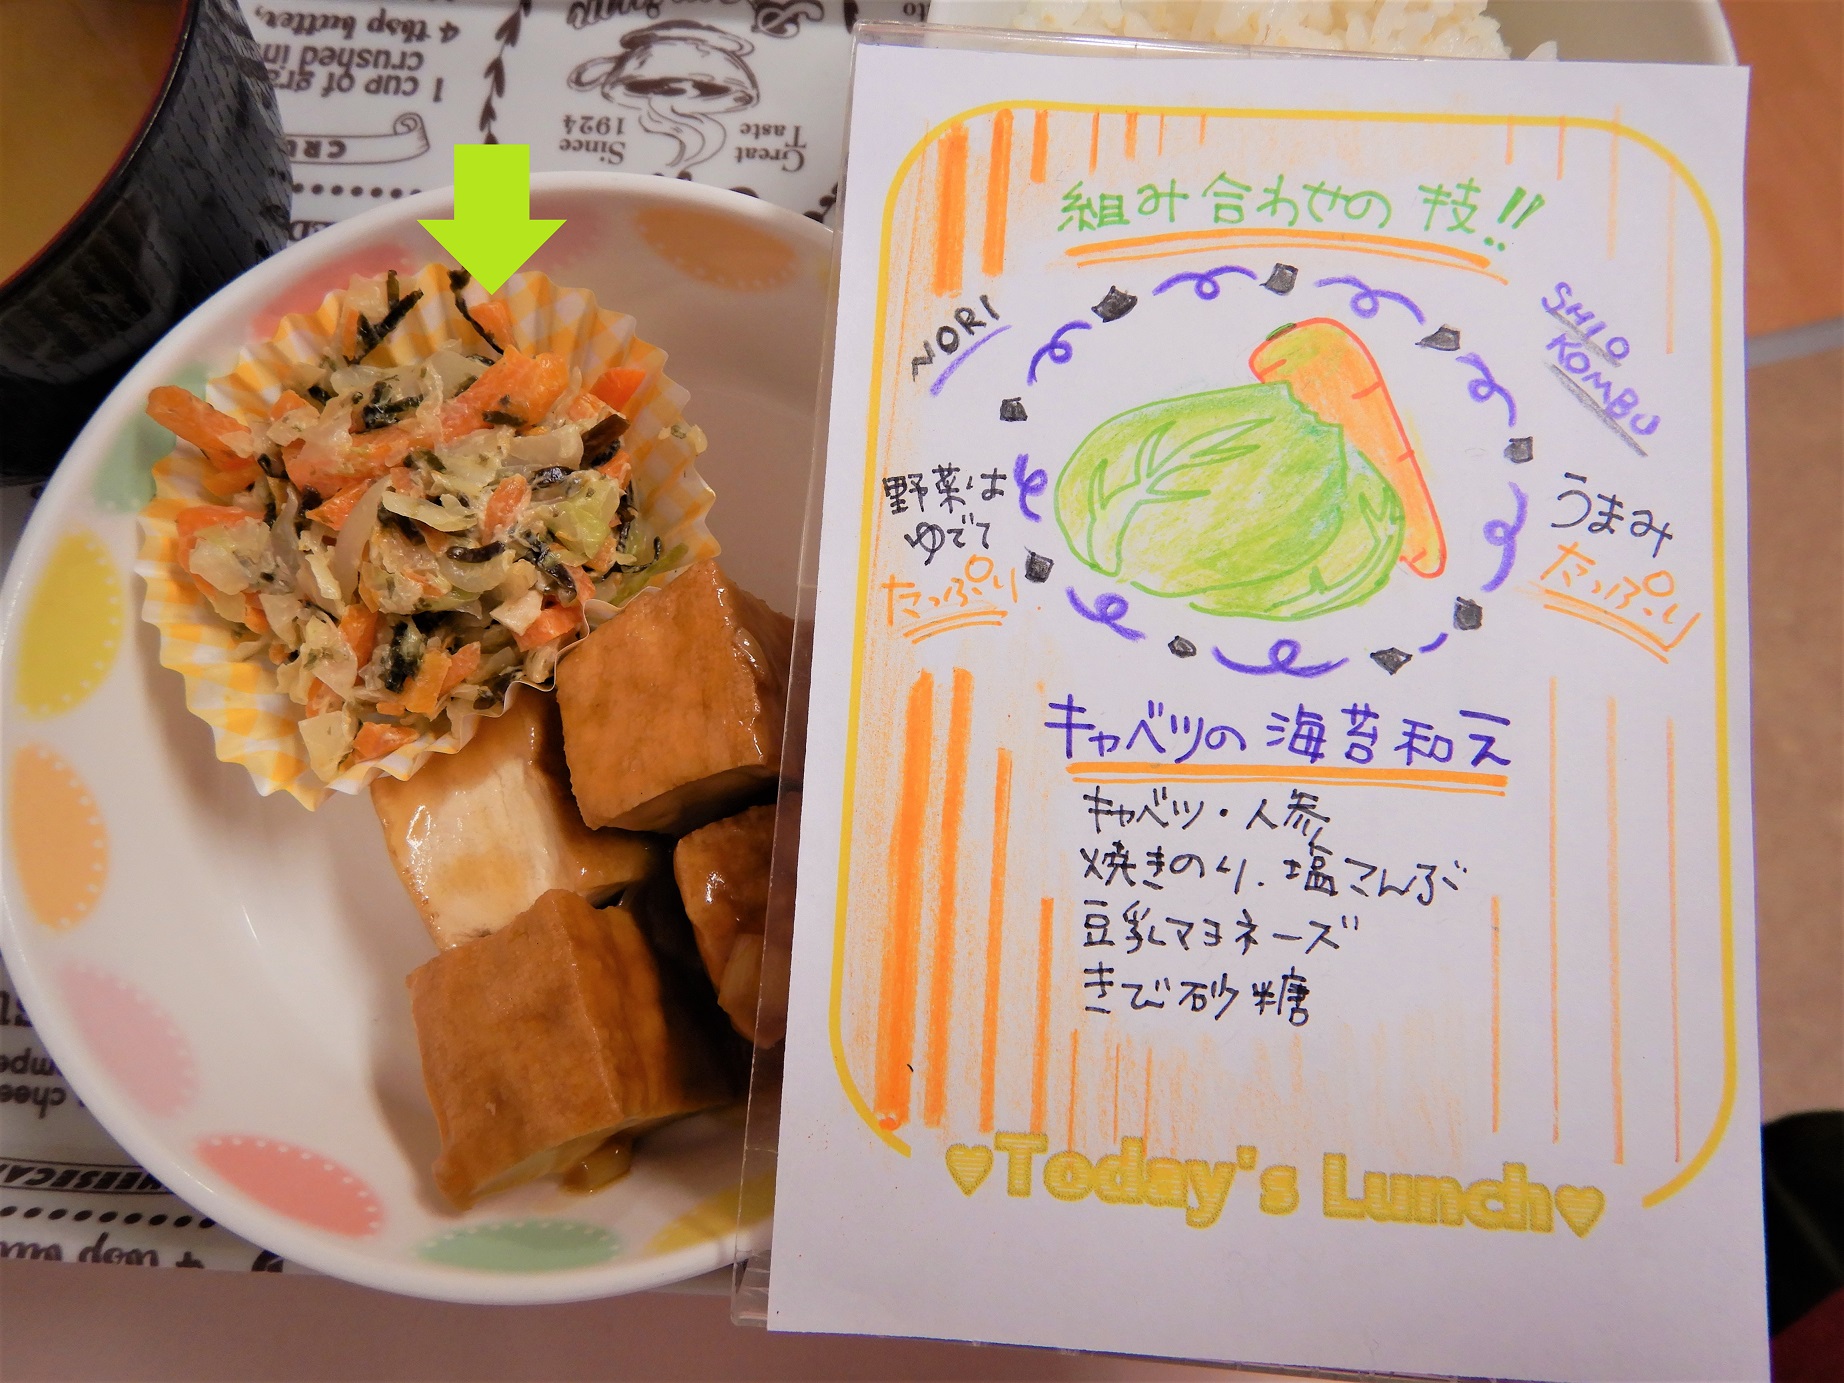 4 tbsp butter,
crushed in
1 cup of gra
Since
1924
Great
Taste
組み合わせの 技!!
NORI
SHIO
KOMBU
野菜は
ゆでて
たっぷり
うまみ
たっぷり
キャベツの 海苔和え
キャベツ・人参
焼きのり.塩こんぶ
豆乳マヨネーズ
きび砂糖
♥Today's Lunch♥